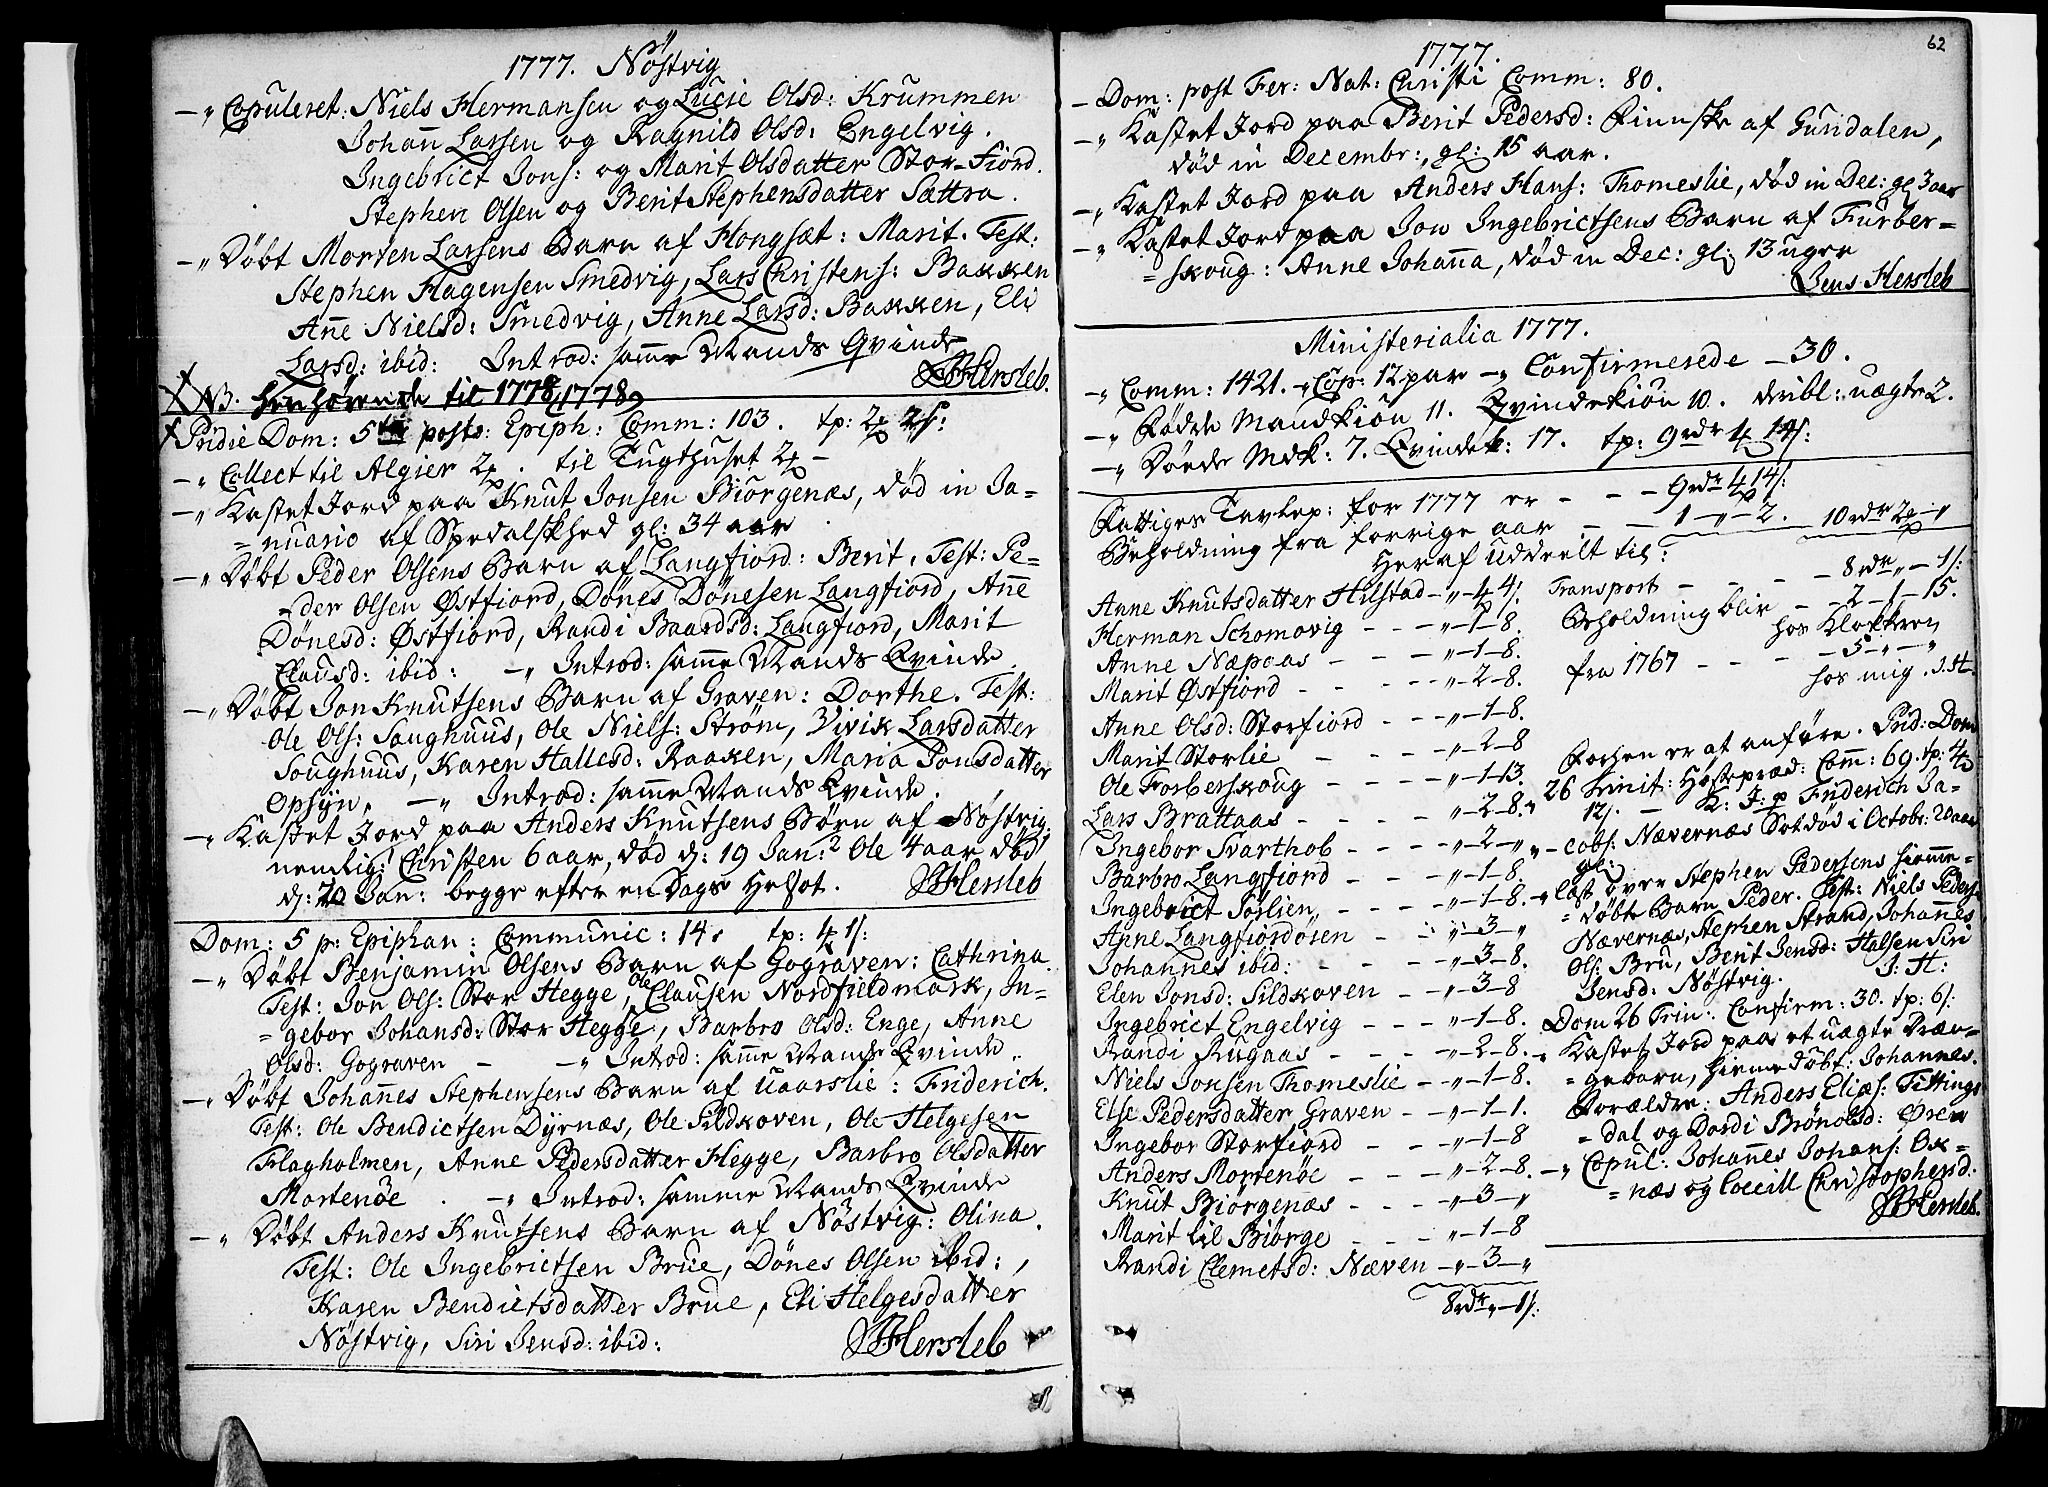 1777. Nöstvig
— „ Copuleret: Niels Hermansen og Lucie Olsd: Krummen
Johan Larsen og Ragnild Olsd: Engelvig.
Ingebrict Jons: og Marit Olsdatter Stor-Fiord.
Stephen Olsen og Berit Stephensdatter Sættra.
— „ Döbt Morten Larsens Barn af Hongsæt: Marit. Test:
Stephen Hagensen Smedvig, Lars Christens: Bakken
Anne Nielsd: Smedvig, Anne Larsd: Bakken, Eli
Larsd: ibid: Introd: samme Mands Qvinde
JHersleb.
NB. henhörende til 1778, 1778,
Pridie Dom: 5 post: Epiph: Comm: 103. tp: 2 2s:
— „ Collect til Algier 2 . til Tugthuset 2 —
— „ Kastet Jord paa Knut Jonsen Biörgenæs, död in Ja=
= nuario af Spedalskhed gl: 34 aar.
— „ Döbt Peder Olsens Barn af Langfiord: Berit. Test: Pe=
= der Olsen Østfiord, Dönes Dönesen Langfiord, Anne
Dönesd: Østfiord, Randi Baardsd: Langfiord, Marit
Clausd: ibid: — „ Introd: samme Mands Qvinde.
— „ Döbt Jon Knutsens Barn af Graven: Dorthe. Test:
Ole Ols: Soughuus, Ole Niels: Ström, Vivik Larsdatter
Soughuus, Karen Hallesd: Raaken, Maria Jonsdatter
Opsÿn. — „ Introd: samme Mands Qvinde.
— „ Kastet Jord paa Anders Knutsens Börn af Nöstvig
nemlig: Christen 6 aar, död d: 19 Jan: Ole 4 aar död
d: 20 Jan: begge efter en Dags Helsot. JHersleb
Dom: 5 p: Epiphan: Communic: 14. tp: 4 1s:
— „ Döbt Benjamin Olsens Barn af Gograven: Cathrina.
Test: Jon Ols: Stor Hegge, Ole Clausen Nordfieldmark, In=
= gebor Johansd: Stor Hegge, Barbro Olsd: Enge, Anne
Olsd: Gograven — — „ Introd: samme Mands Qvinde.
— „ Döbt Johannes Stephensens Barn af Uaarslie: Friderich.
Test: Ole Bendictsen Dyrnæs, Ole Sildkoven, Ole Helgesen
Flagholmen, Anne Pedersdatter Hegge, Barbro Olsdatter
Mortenöe. — „ Introd: samme Mands Qvinde
— „ Döbt Anders Knutsens Barn af Nöstvig: Olina.
Test: Ole Ingebrictsen Brue, Dönes Olsen ibid:,
Karen Bendictsdatter Brue, Eli Helgesdatter
Nöstvig, Siri Jensd: ibid: JHersleb
62
1777.
— Dom: post Fer: Nat: Christi Comm: 80.
— „ Kastet Jord paa Berit Pedersd: Finnske af Gundalen,
död in Decembr:, gl: 15 aar.
— „ Kastet Jord paa Anders Hans: Thomeslie, död in Dec: gl 3 aar
— „ Kastet Jord paa Jon Ingebrictsens Barn af Furber=
= skoug: Anne Johanna, död in Dec: gl: 13 uger
Jens Hersleb
Ministerialia 1777.
— „ Comm: 1421. „ Cop: 12 par — „ Confirmerede — 30.
— „ Födde Mandkiön 11. Qvindekiön 10. deribl: uægte 2.
— „ Döede Mdk: 7. Qvindek: 17. tp: 9 rdr 4 14s:
Fattiges Tavlep: for 1777 er - - - 9 rdr 4 14s:
Beholdning fra forrige aar - - 1 — „ — 2. 10 rdr 2 — „
Heraf uddeelt til:
Anne Knutsdatter Hilstad — „ — 4 4s.
Herman Schomovig - - - „ — 1 — 8.
Anne Næpaas - - - - „ — 1 — 8.
Marit Østfiord - - - - „ — 2 — 8.
Anne Olsd: Storfiord - - - „ — 1 — 8.
Marit Storlie - - - „ — 2 — 8
Ole Forberskoug - - - - „ — 1 — 13.
Lars Brattaas - - - - „ — 2 — 8.
Ingebor Svarthol - - - - „ — 2 — „
Barbro Langfiord - - - „ — 1 — 8.
Ingebrict Sorlien, - - - - „ — 1 — 8.
Anne Langfiordösen - - „ — 3 — „
Johannes ibid: - - - - „ — 3 — 8.
Elen Jonsd: Sildkoven - - „ — 3 — 8
Ingebrict Engelvig - - - „ — 1 — 8.
Randi Rugaas - - - - „ — 2 — 8.
Niels Jonsen Thomeslie - - „ — 1 — 8.
Else Pedersdatter Graven - - „ — 1 — 1.
Ingebor Storfiord - - „ — 1 — 8
Anders Mortenöe - - - „ — 2 — 8.
Knut Biörgenæs - - - „ — 3 — „
Marit lil Biörge - - - „ — 1 — 8
Randi Clemetsd: Næven — „ — 3 — „
8 rdr „ — 1s:
Transport - - „ - - 8 rdr „ — 1s:
Beholdning blir - - 2 — 1 — 15.
hos Klokkeren
fra 1767 - - - - 5 — „ — „
hos mig. J. H.
Forhen er at anföre. Prid: Dom
26 Trinit: Höstepræd: Comm: 69. tp: 4
12s. — K: J: p Friderich Ja=
= cobs: Nævernæs Sot död i Octobr: 20 aar
gl:
— „ Cast over Stephen Pedersens hiemme=
= döbte Barn Peder. Test: Niels Peders:
Nævernæs, Stephen Strand, Johannes
Ols: Bru, Berit Jensd: Halsen Siri
Jensd: Nöstvig. J: H:
Dom 26 Trin: Confirm: 30. tp: 6s:
— „ Kastet Jord paa et uægte Dræn=
= gebarn, hiemedöbt: Johannes.
Forældre: Anders Elias: Tittings
= dal og Dordi Brönolsd: Ören
— „ Copul: Johannes Johans: Ox=
= næs og Coecill Christophersd:
JHersleb.